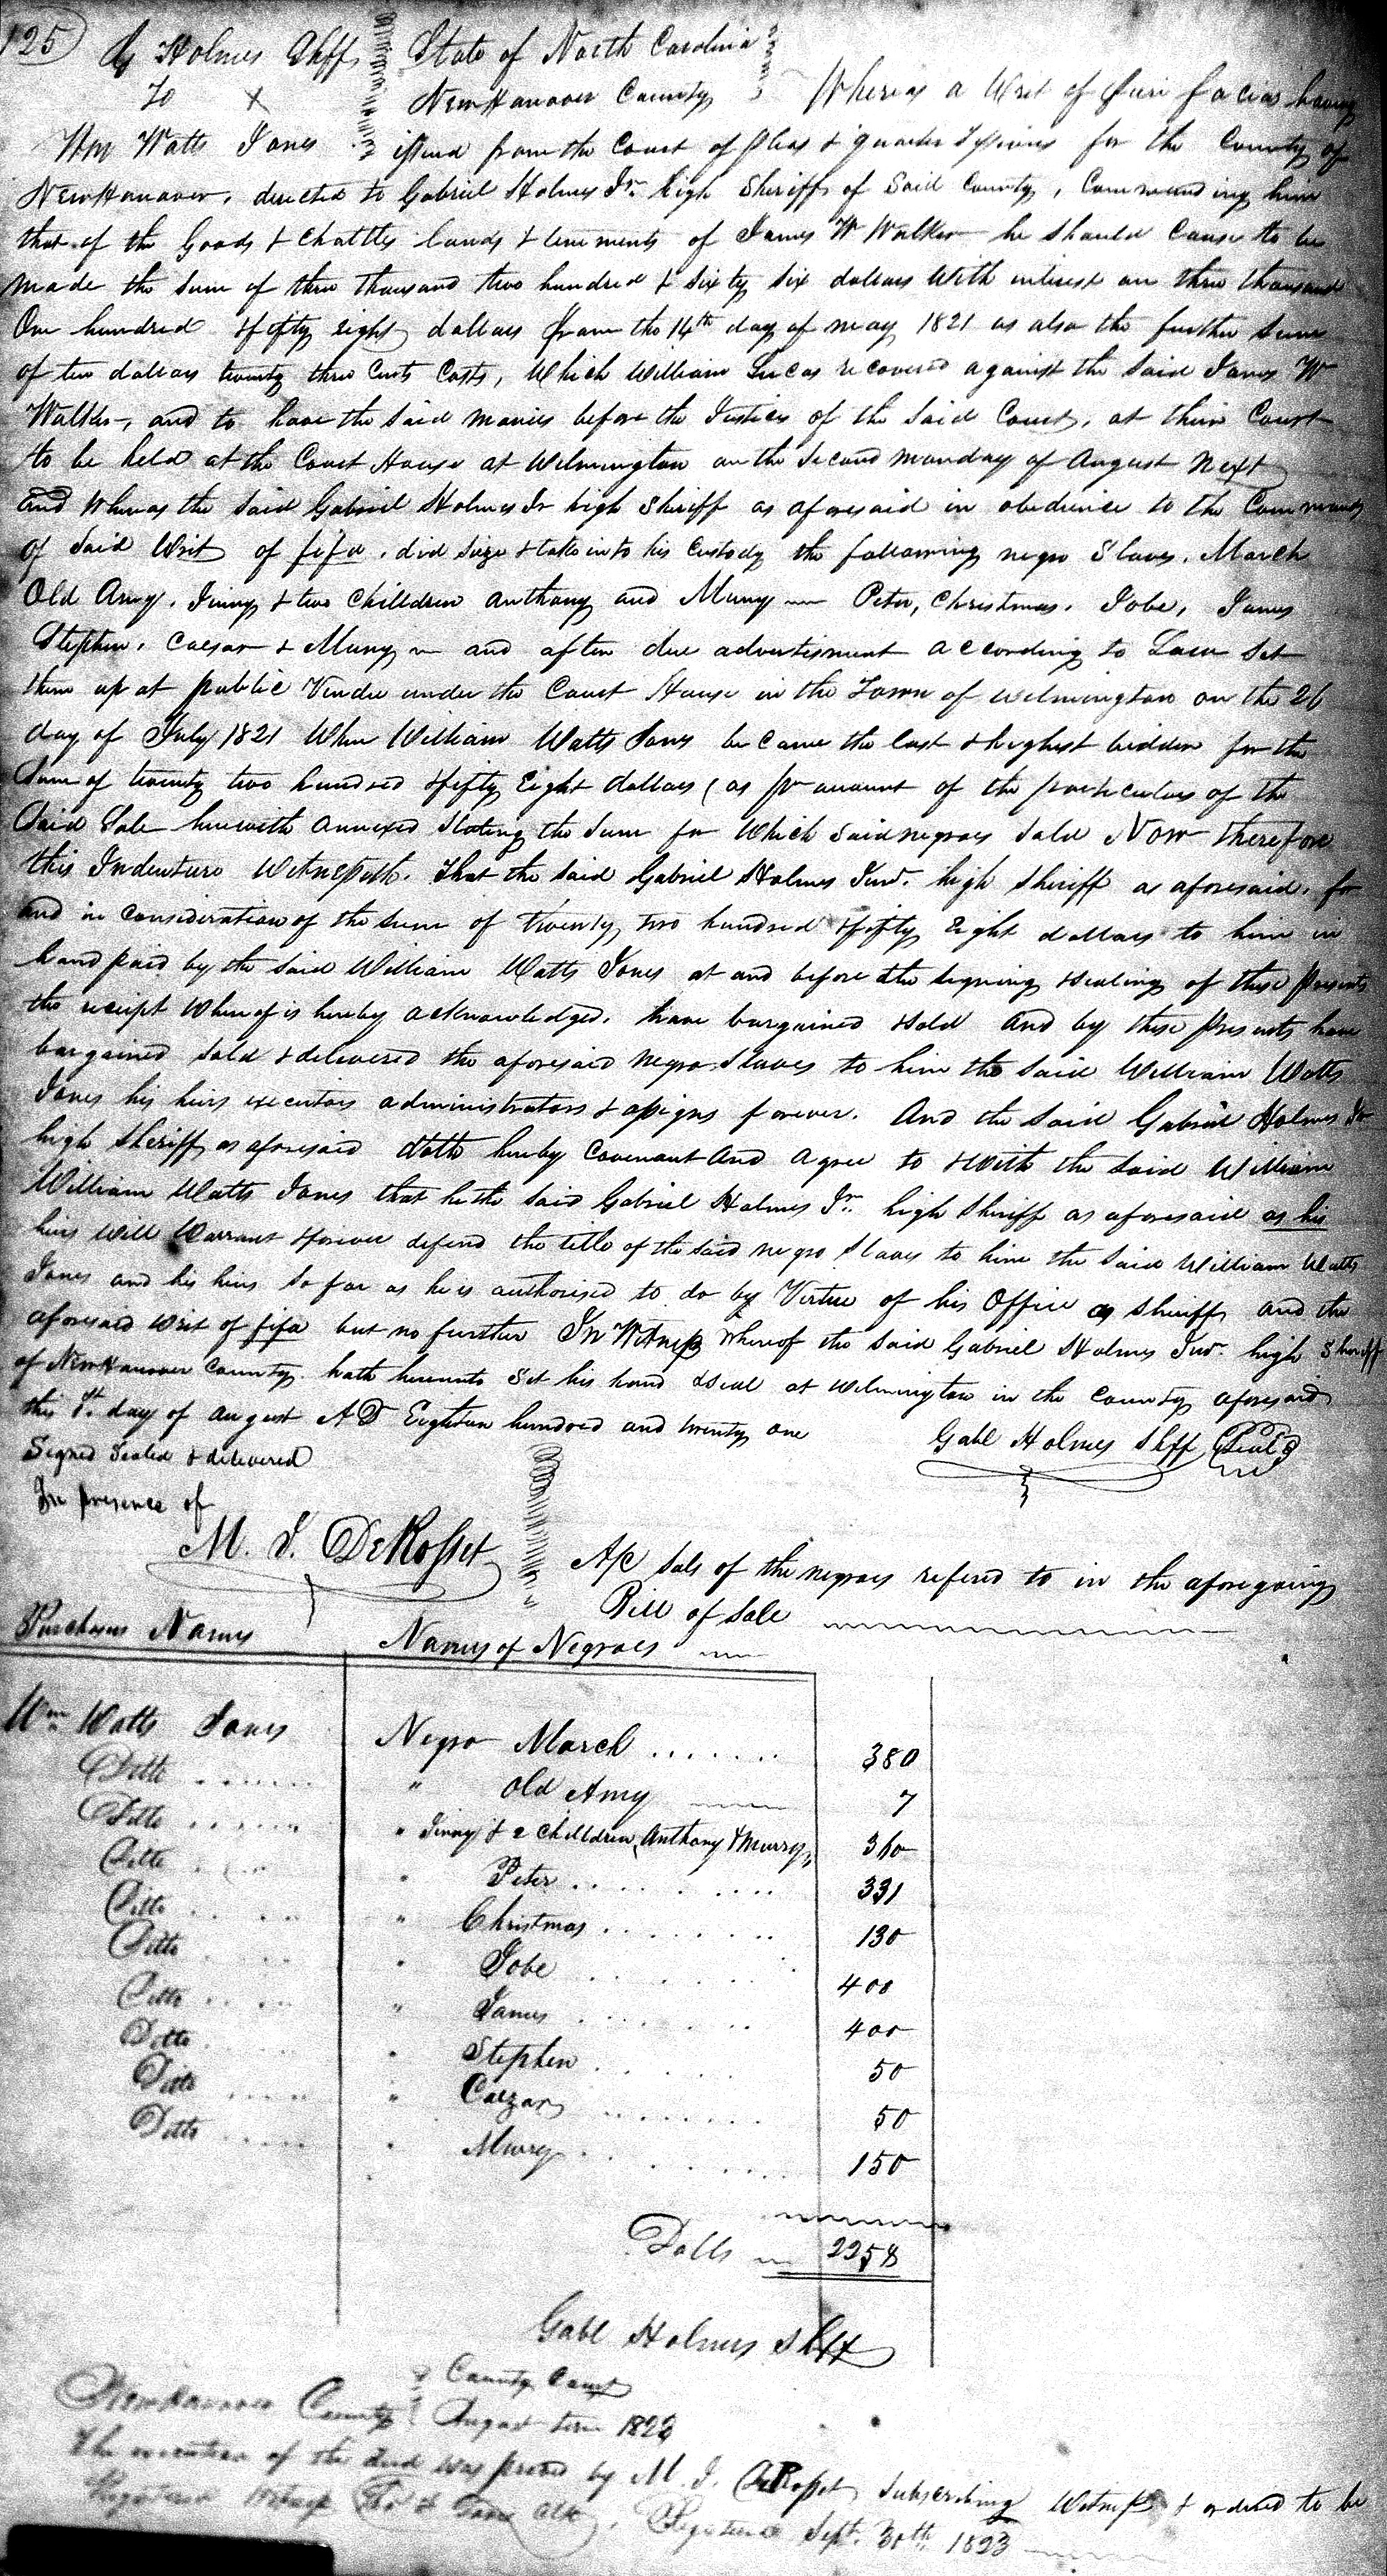 125 G Holmes Shff State of North Carolina
To X New Hanover County Whereas a Writ of fieri facias having
Wm Watts Jones issued from the Court of Pleas & quarter Sessions for the County of
New Hanover, directed to Gabriel Holmes Jr. high Sheriff of Said County, Commanding him
that of the Goods & Chattles lands & tenements of James W Walker he should Cause to be
made the Sum of three thousand two hundred & sixty six dollars With interest on three thousand
One hundred & fifty eight dollars from the 14th day of may 1821 as also the further Sum
of ten dollars twenty three Cents Costs, Which William Lucas recovered against the Said James W
Walker, and to have the Said monies before the Justices of the Said Court, at their Court
to be held at the Court House at Wilmington on the Second monday of August Next
and Whereas the Said Gabriel Holmes Jr high Sheriff as aforesaid in obedience to the Commands
of Said Writ of fifa. did Sieze & take into his Custody the following negro Slaves. March
Old Amy. Jinny & two Childdren Anthony and Muny Peter, Christmas. Jobe, James
Stephen. Caesar & Muny and after due advertisment according to Law Set
them up at public Vendue under the Court House in the Town of Wilmington on the 26
day of July 1821 When William Watts Jones became the last & highest bidder for the
Sum of twenty two hundred & fifty Eight dollars (as pr amount of the particulars of the
Said Sale herewith annexed Stating the Sum for Which Said negroes Sold Now therefore
this Indenture Witnesseth. That the Said Gabriel Holmes Junr. high Sheriff as aforesaid. for
and in Consideration of the Sum of twenty two hundred & fifty Eight dollars to him in
hand paid by the Said William Watts Jones at and before the Signing & Sealing of these presents
the receipt Whereof is hereby acknowledged. have bargained & Sold And by these presents have
bargained Sold & delivered the aforesaid negro Slaves to him the Said William Watts
Jones his heirs executors administrators & assigns forever. And the Said Gabriel Holmes Jr
high Sheriff as aforesaid doth hereby Covenant And agree to & With the Said William
William Watts Jones that he the Said Gabriel Holmes Jr. high Sheriff as aforesaid as his
heirs Will Warrant & forever defend the title of the Said negro Slaves to him the Said William Watts
Jones and his heirs So far as he is authorised to do by Virtue of his Office as Sheriff and the
aforesaid Writ of fifa but no further In Witness Whereof the Said Gabriel Holmes Junr. high Sheriff
of New Hanover County hath hereunto Set his hand & Seal at Wilmington in the County aforesaid
this day of August AD Eighteen hundred and twenty one Gabl Holmes Shff Seal
Signed Sealed & delivered
In presence of
M. J. DeRosset
A/c Sals of the negroes refered to in the aforegoing
Bill of Sale
Purchasers Names Names of Negroes
Wm Watts Jones Negro March 380
Ditto " Old Amy 7
Ditto " Jinny & 2 Childdren Anthony & Murry 360
Ditto " Peter 331
Ditto " Christmas 130
Ditto " Jobe 400
Ditto " James 400
Ditto " Stephen 50
Ditto " Caezar 50
Ditto " Murry 150
Dolls 2258
Gabl Holmes Shff
County Court
New Hanover County August term 1822
The execution of the deed was proved by M. J. DeRosset Subscribing Witness & ordered to be
Registered Registered Sept. 30th 1823